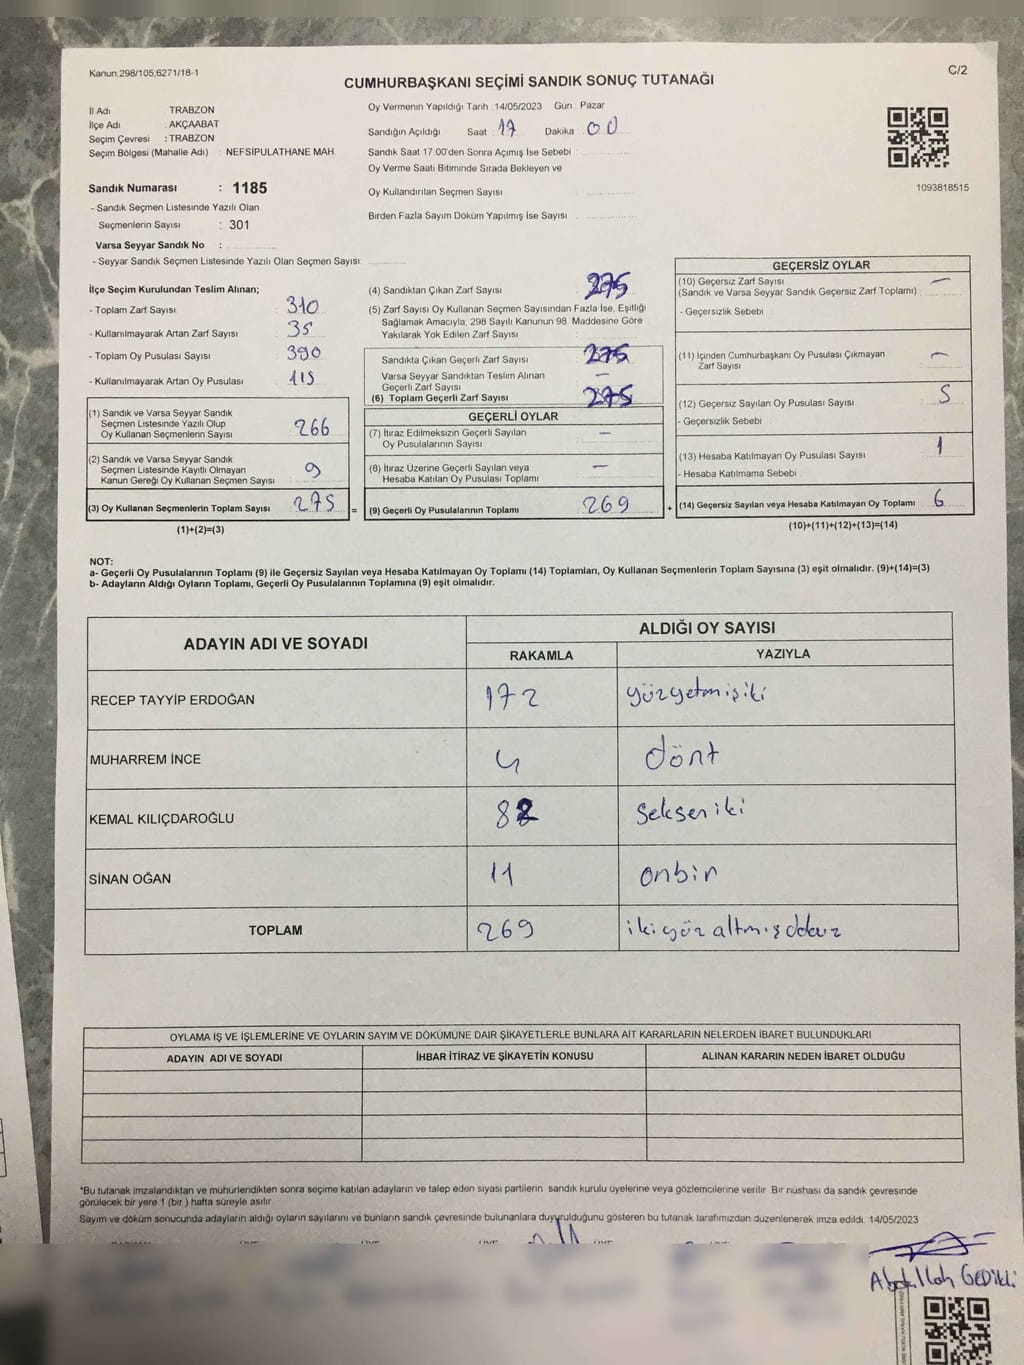 Kanun;298/105;6271/18-1
C/2
CUMHURBAŞKANI SEÇİMİ SANDIK SONUÇ TUTANAĞI
İl Adı TRABZON
İlçe Adı : AKÇAABAT
Seçim Çevresi : TRABZON
Seçim Bölgesi (Mahalle Adı) : NEFSİPULATHANE MAH.
Sandık Numarası : 1185
- Sandık Seçmen Listesinde Yazılı Olan
Seçmenlerin Sayısı : 301
Varsa Seyyar Sandık No :
- Seyyar Sandık Seçmen Listesinde Yazılı Olan Seçmen Sayısı:
Oy Vermenin Yapıldığı Tarih : 14/05/2023 Gün : Pazar
Sandığın Açıldığı Saat : 17 Dakika : 00
Sandık Saat 17:00'den Sonra Açımış İse Sebebi :
Oy Verme Saati Bitiminde Sırada Bekleyen ve
Oy Kullandırılan Seçmen Sayısı
Birden Fazla Sayım Döküm Yapılmış İse Sayısı
1093818515
İlçe Seçim Kurulundan Teslim Alınan;
- Toplam Zarf Sayısı : 310
- Kullanılmayarak Artan Zarf Sayısı : 35
- Toplam Oy Pusulası Sayısı : 390
- Kullanılmayarak Artan Oy Pusulası : 115
(1) Sandık ve Varsa Seyyar Sandık
Seçmen Listesinde Yazılı Olup
Oy Kullanan Seçmenlerin Sayısı 266
(2) Sandık ve Varsa Seyyar Sandık
Seçmen Listesinde Kayıtlı Olmayan
Kanun Gereği Oy Kullanan Seçmen Sayısı 9
(3) Oy Kullanan Seçmenlerin Toplam Sayısı 275 =
(1)+(2)=(3)
(4) Sandıktan Çıkan Zarf Sayısı 275
(5) Zarf Sayısı Oy Kullanan Seçmen Sayısından Fazla İse, Eşitliği
Sağlamak Amacıyla, 298 Sayılı Kanunun 98. Maddesine Göre
Yakılarak Yok Edilen Zarf Sayısı
Sandıkta Çıkan Geçerli Zarf Sayısı 275
Varsa Seyyar Sandıktan Teslim Alınan
Geçerli Zarf Sayısı —
(6) Toplam Geçerli Zarf Sayısı 275
GEÇERLİ OYLAR
(7) İtiraz Edilmeksizin Geçerli Sayılan
Oy Pusulalarının Sayısı —
(8) İtiraz Üzerine Geçerli Sayılan veya
Hesaba Katılan Oy Pusulası Toplamı —
(9) Geçerli Oy Pusulalarının Toplamı 269 +
GEÇERSİZ OYLAR
(10) Geçersiz Zarf Sayısı —
(Sandık ve Varsa Seyyar Sandık Geçersiz Zarf Toplamı) :
- Geçersizlik Sebebi
(11) İçinden Cumhurbaşkanı Oy Pusulası Çıkmayan
Zarf Sayısı —
(12) Geçersiz Sayılan Oy Pusulası Sayısı 5
- Geçersizlik Sebebi
(13) Hesaba Katılmayan Oy Pusulası Sayısı 1
- Hesaba Katılmama Sebebi
(14) Geçersiz Sayılan veya Hesaba Katılmayan Oy Toplamı 6
(10)+(11)+(12)+(13)=(14)
NOT:
a- Geçerli Oy Pusulalarının Toplamı (9) ile Geçersiz Sayılan veya Hesaba Katılmayan Oy Toplamı (14) Toplamları, Oy Kullanan Seçmenlerin Toplam Sayısına (3) eşit olmalıdır. (9)+(14)=(3)
b- Adayların Aldığı Oyların Toplamı, Geçerli Oy Pusulalarının Toplamına (9) eşit olmalıdır.
ADAYIN ADI VE SOYADI ALDIĞI OY SAYISI
RAKAMLA YAZIYLA
RECEP TAYYİP ERDOĞAN 172 yüzyetmişiki
MUHARREM İNCE 4 dönt
KEMAL KILIÇDAROĞLU 82 sekseniki
SİNAN OĞAN 11 onbir
TOPLAM 269 ikiyüz altmış dokuz
OYLAMA İŞ VE İŞLEMLERİNE VE OYLARIN SAYIM VE DÖKÜMÜNE DAİR ŞİKAYETLERLE BUNLARA AİT KARARLARIN NELERDEN İBARET BULUNDUKLARI
ADAYIN ADI VE SOYADI İHBAR İTİRAZ VE ŞİKAYETİN KONUSU ALINAN KARARIN NEDEN İBARET OLDUĞU
*Bu tutanak imzalandıktan ve mühürlendikten sonra seçime katılan adayların ve talep eden siyasi partilerin sandık kurulu üyelerine veya gözlemcilerine verilir. Bir nüshası da sandık çevresinde
görülecek bir yere 1 (bir) hafta süreyle asılır.
Sayım ve döküm sonucunda adayların aldığı oyların sayılarını ve bunların sandık çevresinde bulunanlara duyurulduğunu gösteren bu tutanak tarafımızdan düzenlenerek imza edildi. 14/05/2023
Abdullah GEDİKLİ